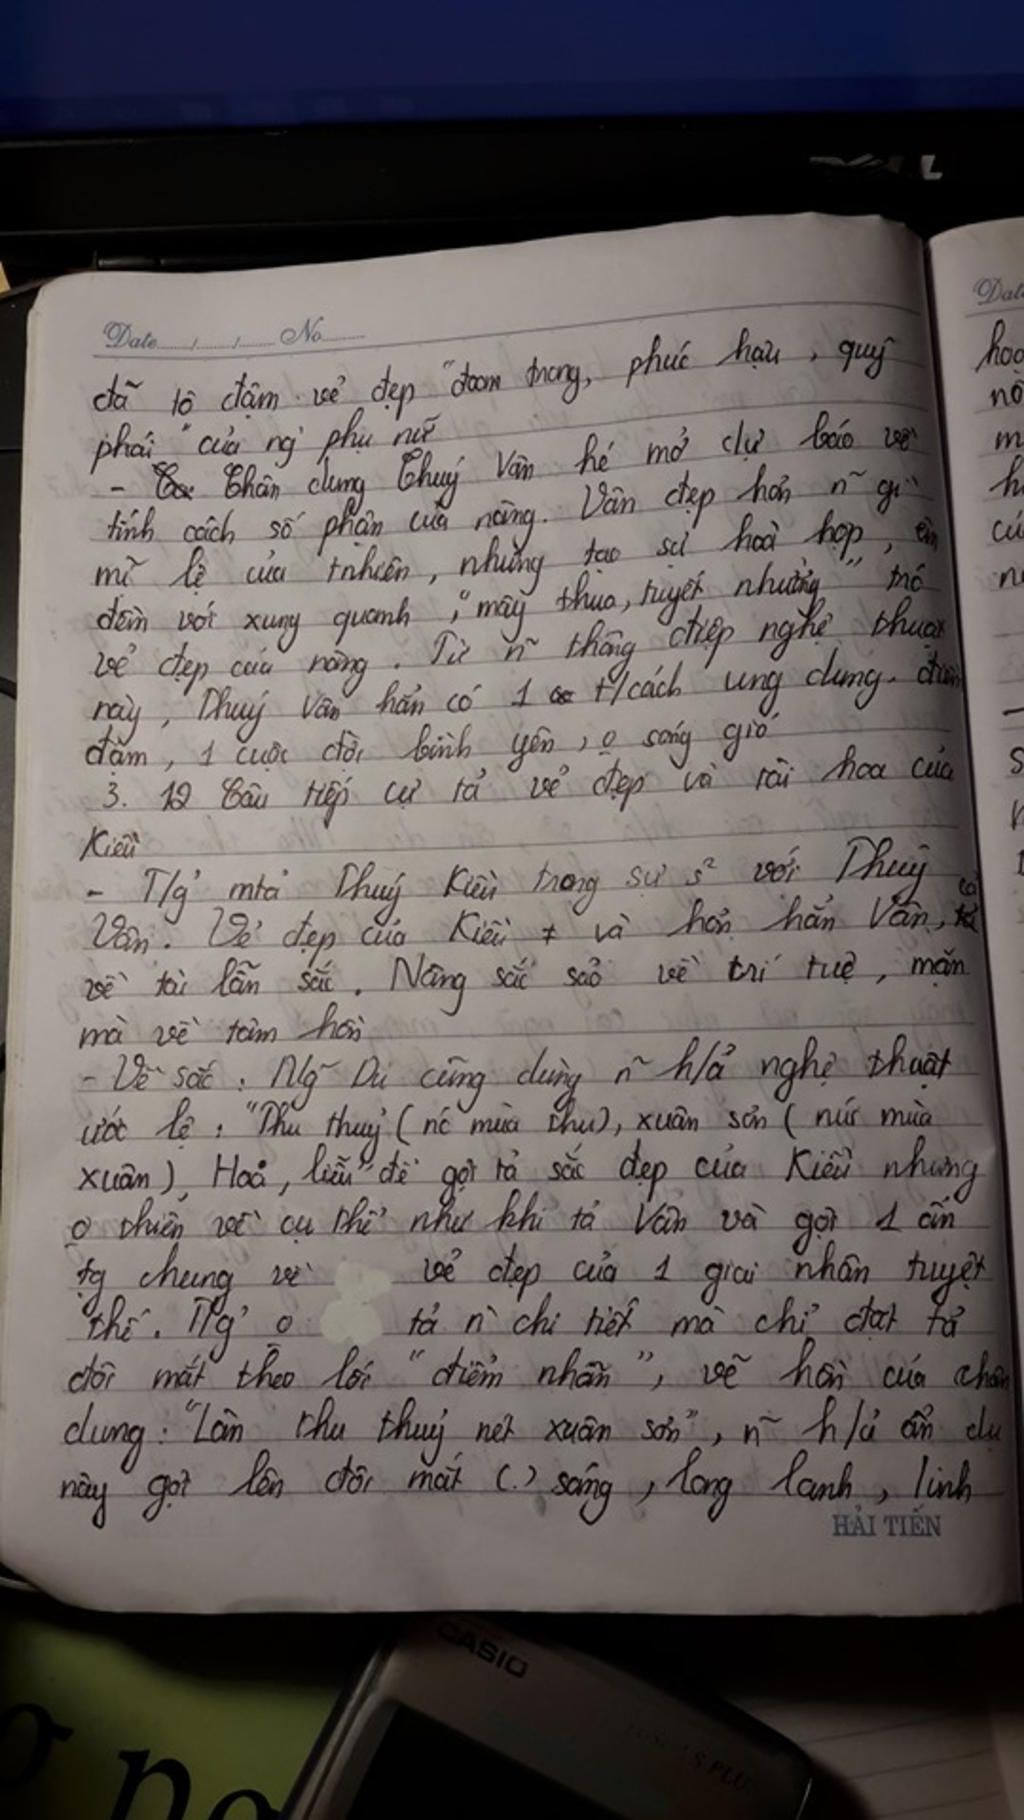 Date...../...../..... No.........
đã tô đậm vẻ đẹp "đoan trang, phúc hậu, quý
phái" của ng phụ nữ
- Chân dung Thuý Vân hé mở dự báo về
tính cách số phận của nàng. Vân đẹp hơn n~ gì
mĩ lệ của tnhiên, nhưng tạo sự hoà hợp, êm
đềm với xung quanh, "mây thua, tuyết nhường" trc
vẻ đẹp của nàng. Từ n~ thông điệp nghệ thuật
này, Thuý Vân hẳn có 1 t/cách ung dung. điềm
đạm, 1 cuộc đời bình yên, o sóng gió
3. 12 Câu tiếp cự tả vẻ đẹp và tài hoa của
Kiều
- T/g' mtả Thuý Kiều trong sự s² với Thuý
Vân. Vẻ đẹp của Kiều ≠ và hơn hẳn Vân, cả
về tài lẫn sắc. Nàng sắc sảo về trí tuệ, mặn
mà về tâm hồn
- Về sắc: Ng~ Du cũng dùng n~ h/ả nghệ thuật
ước lệ: "Thu thuỷ (nc mùa thu), xuân sơn (núi mùa
xuân), Hoa, liễu" để gợi tả sắc đẹp của Kiều nhưng
o thiên về cụ thể như khi tả Vân và gợi 1 ấn
tg chung về vẻ đẹp của 1 giai nhân tuyệt
thế. T/g' o tả n` chi tiết mà chỉ đặt tả
đôi mắt theo lối "điểm nhãn", vẽ hồn của chân
dung: "Làn thu thuỷ nét xuân sơn", n~ h/ả ẩn dụ
này gợi lên đôi mắt (.) sáng, long lanh, linh
HẢI TIẾN
Date
CASIO